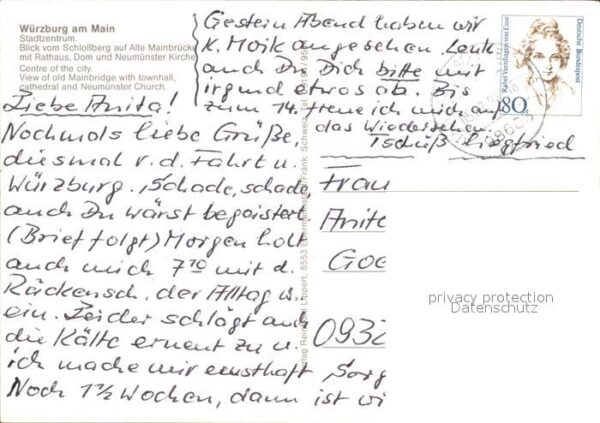 Würzburg am Main
Stadtzentrum.
Blick vom Schloßberg auf Alte Mainbrücke
mit Rathaus, Dom und Neumünster Kirche
Centre of the city.
View of old Mainbridge with townhall,
cathedral and Neumünster Church.
Liebe Anita!
Nochmals liebe Grüße,
diesmal v. d. Fahrt u.
Würzburg. Schade, schade,
auch Du wärst begeistert.
(Brief folgt) Morgen holt
auch mich 7¹⁰ mit d.
Rückensch. der Alltag w.
ein. Leider schlägt auch
die Kälte erneut zu u.
ich mache mir ernsthaft Sorg
Noch 1½ Wochen, dann ist wi
Gestern Abend haben wir
K. Moik angesehen. Lenk
auch Du Dich bitte mit
irgend etwas ab. Bis
zum 14. freue ich mich auf
das Wiedersehen.
Tschüß Siegfried
Rahel Varnhagen von Ense
Deutsche Bundespost
80
Frau
Anita
Goe
0932
privacy protection
Datenschutz